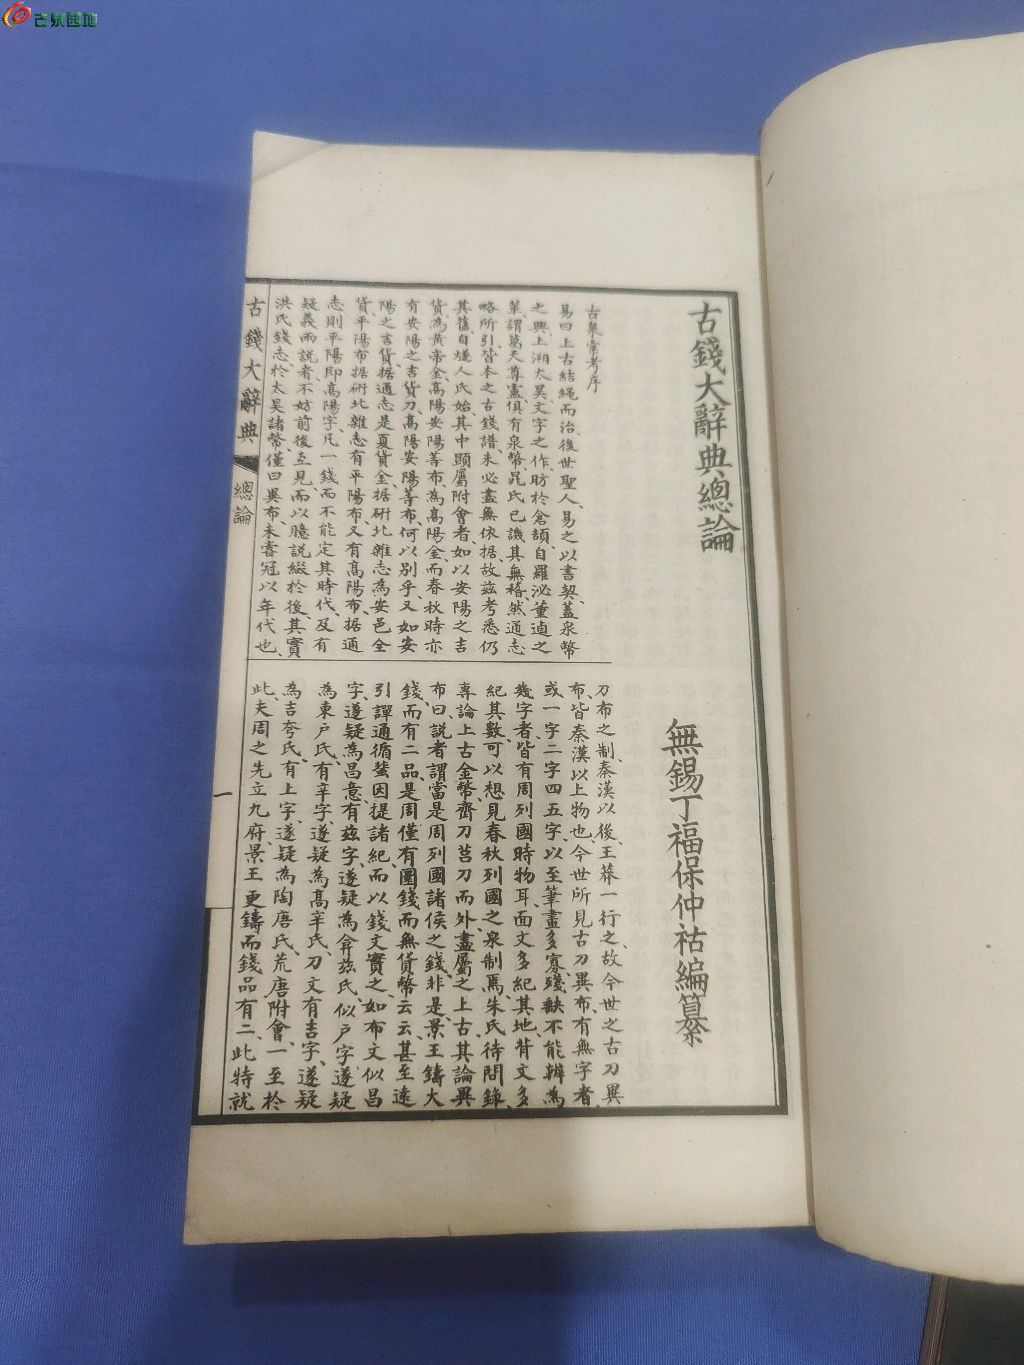 古泉园地
古錢大辭典總論
無錫丁福保仲祜編纂
古泉彙考序
易曰上古結繩而治後世聖人易之以書契蓋泉幣
之興上溯太昊文字之作昉於倉頡自羅泌董逌之
輩謂葛天尊盧俱有泉幣晁氏已譏其無稽然通志
略所引皆本之古錢譜未必盡無依据故茲考悉仍
其舊自燧人氏始其中顕屬附會者如以安陽之吉
貨為黃帝金高陽安陽等布為高陽金而春秋時亦
有安陽之吉貨刀高陽安陽等布何以別乎又如安
陽之吉貨據通志是夏貨金据研北雜志為安邑全
貨平陽布据研北雜志有平陽布又有高陽布据通
志則平陽即高陽字凡一錢而不能定其時代及有
疑義兩說者不妨前後互見而以臆說綴於後其實
洪氏錢志於太昊諸幣僅曰異布未嘗冠以年代也
刀布之制秦漢以後王莽一行之故今世之古刀異
布皆秦漢以上物也今世所見古刀異布有無字者
或一字二字四五字以至筆畫多寡殘缺不能辨為
幾字者皆有周列國時物耳面文多紀其地背文多
紀其數可以想見春秋列國之泉制焉朱氏待問錄
專論上古金幣齊刀莒刀而外盡屬之上古其論異
布曰說者謂當是周列國諸侯之錢非是景王鑄大
錢而有二品是周僅有圜錢而無貨幣云云甚至遠
引譚通循蜚因提諸紀而以錢文實之如布文似昌
字遂疑為昌意有茲字遂疑為弇茲氏似户字遂疑
為東户氏有辛字遂疑為高辛氏刀文有吉字遂疑
為吉夸氏有上字遂疑為陶唐氏荒唐附會一至於
此夫周之先立九府景王更鑄而錢品有二此特就
古錢大辭典
總論
一